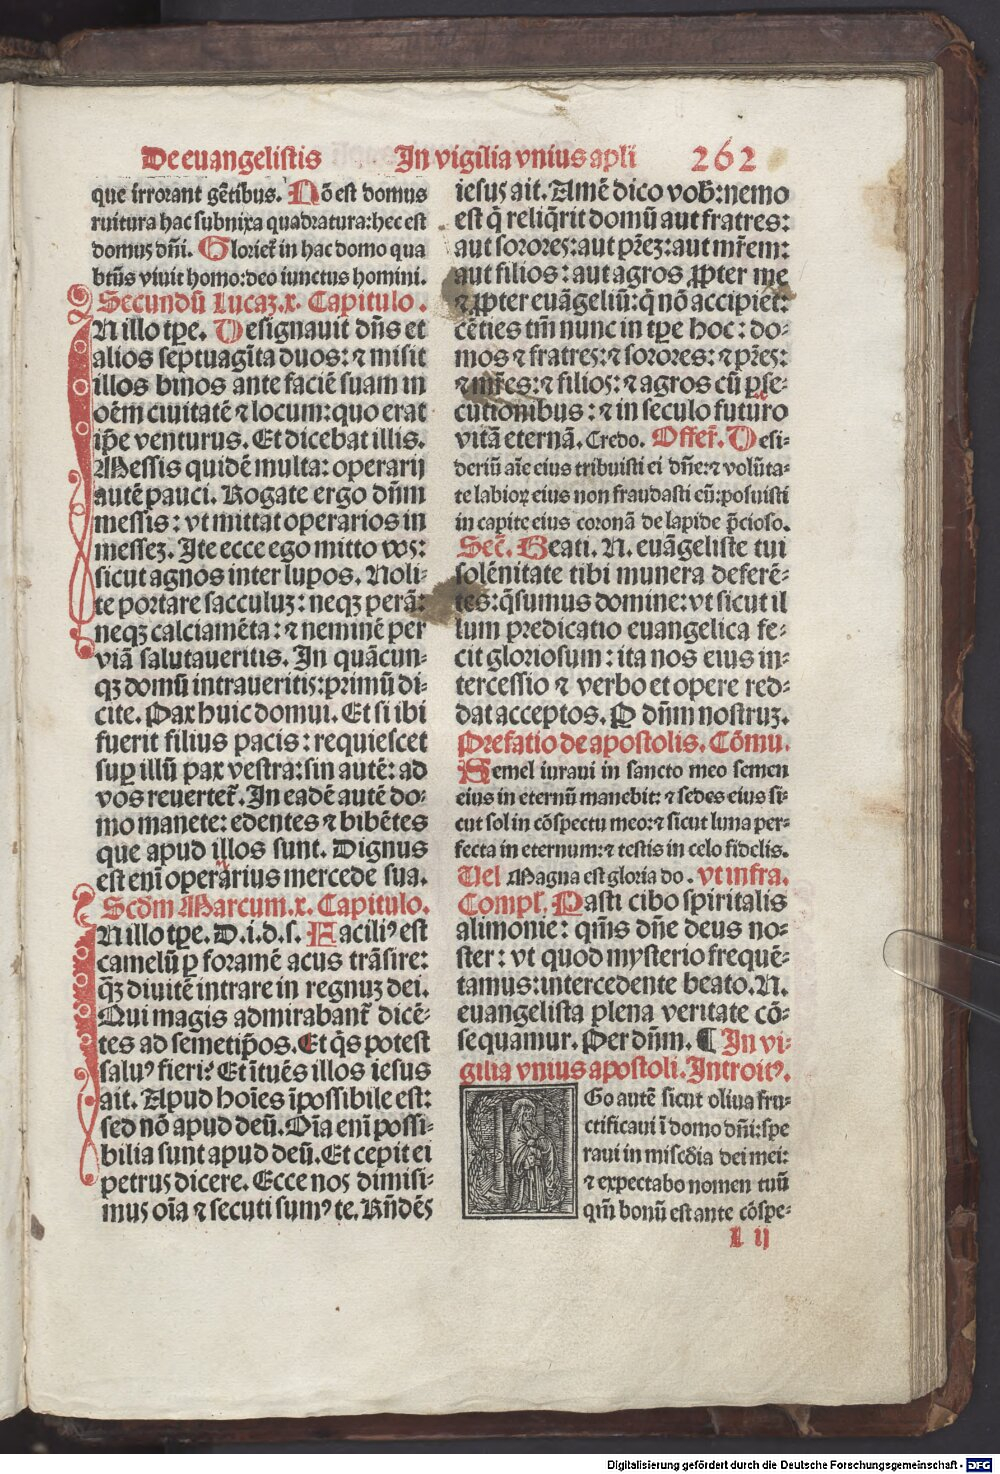 De euangelistis In vigilia vnius apli 262
que irrorant gētibus. Nō est domus
ruitura hac subnixa quadratura: hec est
domus dn̄i. Glorieť in hac domo qua
btūs viuit homo: deo iunctus homini.
Secundū Lucaꝫ.x. Capitulo.
IN illo tp̄e. Designauit dn̄s et
alios septuagīta duos: ⁊ misit
illos binos ante faciē suam in
oēm ciuitatē ⁊ locum: quo erat
ip̄e venturus. Et dicebat illis.
Messis quidē multa: operarij
autē pauci. Rogate ergo dn̄m
messis: vt mittat operarios in
messeꝫ. Ite ecce ego mitto vos:
sicut agnos inter lupos. Noli-
te portare sacculuꝫ: neqꝫ perā:
neqꝫ calciamēta: ⁊ neminē per
viā salutaueritis. In quācun-
qꝫ domū intraueritis: primū di-
cite. Pax huic domui. Et si ibi
fuerit filius pacis: requiescet
suꝑ illū pax vestra: sin autē: ad
vos reuerteť. In eadē autē do-
mo manete: edentes ⁊ bibētes
que apud illos sunt. Dignus
est enī operarius mercede sua.
Scd̄m Marcum.x. Capitulo.
IN illo tp̄e. D.i.d.s. Faciliꝰ est
camelū ꝑ foramē acus trāsire:
q̄ꝫ diuitē intrare in regnuꝫ dei.
Qui magis admirabanť dicē-
tes ad semetip̄os. Et q̄s potest
saluꝰ fieri? Et ītuēs illos iesus
ait. Apud hoīes īpossibile est:
sed nō apud deū. Oīa enī possi-
bilia sunt apud deū. Et cepit ei
petrus dicere. Ecce nos dimisi-
mus oīa ⁊ secuti sumꝰ te. Rn̄dēs
iesus ait. Amē dico vob̄: nemo
est q̄ reliq̄rit domū aut fratres:
aut sorores: aut pr̄eꝫ: aut mr̄em:
aut filios: aut agros ꝓpter me
⁊ ꝓpter euāgeliū: q̄ nō accipiet:
cēties tm̄ nunc in tp̄e hoc: do-
mos ⁊ fratres: ⁊ sorores: ⁊ pr̄es:
⁊ mr̄es: ⁊ filios: ⁊ agros cū ꝑse-
cutionibus: ⁊ in seculo futuro
vitā eternā. Credo. Offeř. Desi-
deriū aīe eius tribuisti ei dn̄e: ⁊ volūta-
te labioꝝ eius non fraudasti eū: posuisti
in capite eius coronā de lapide p̄cioso.
Sec̄. Beati. N. euāgeliste tui
solēnitate tibi munera deferē-
tes: q̄sumus domine: vt sicut il
lum predicatio euangelica fe-
cit gloriosum: ita nos eius in-
tercessio ⁊ verbo et opere red-
dat acceptos. P dn̄m nostruꝫ.
Prefatio de apostolis. Cōmu.
Semel iuraui in sancto meo semen
eius in eternū manebit: ⁊ sedes eius si-
cut sol in cōspectu meo: ⁊ sicut luna per-
fecta in eternum: ⁊ testis in celo fidelis.
Uel Magna est gloria do. vt infra.
Compl. Pasti cibo spiritalis
alimonie: qm̄s dn̄e deus no-
ster: vt quod mysterio frequē-
tamus: intercedente beato. N.
euangelista plena veritate cō-
sequamur. Per dn̄m. ¶ In vi-
gilia vnius apostoli. Introitꝰ.
EGo autē sicut oliua fru-
ctificaui ī domo dn̄i: spe
raui in miscd̄ia dei mei:
⁊ expectabo nomen tuū
qm̄ bonū est ante cōspe-
L ij
Digitalisierung gefördert durch die Deutsche Forschungsgemeinschaft - DFG